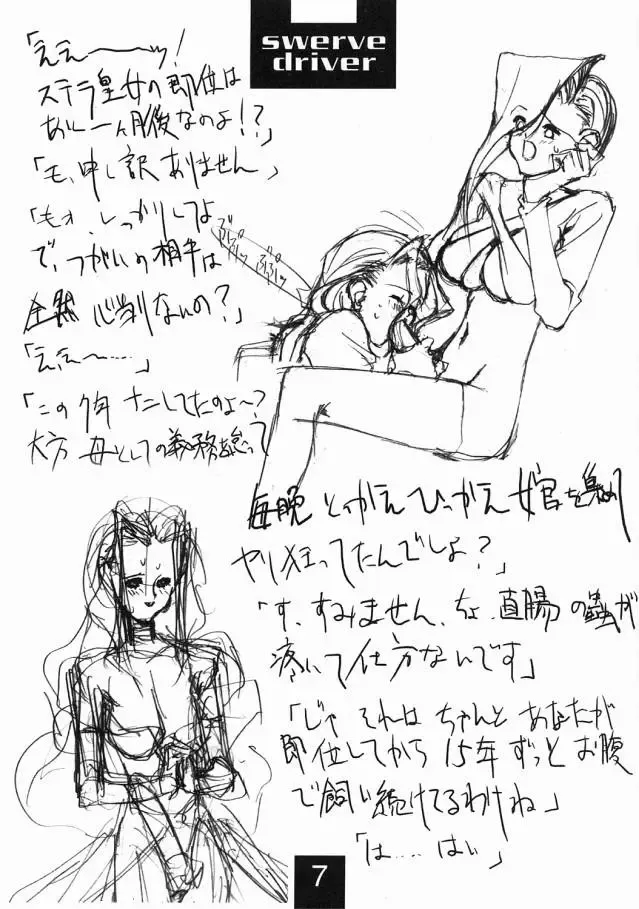 swerve
driver
「ええーーーッ!
ステラ皇女の即位は
あと一ヶ月後なのよ!?」
「も、申し訳ありません」
「もォ、しっかりしてよ
で、つがいの相手は
全然心当りないの?」
「ええ〜……」
「この7年ナニしてたのよ〜?
大方母としての義務を怠って
毎晩とっかえひっかえ女官を集め
ヤリ狂ってたんでしょ?」
「す、すみません、ちょ、直腸の蟲が
疼いて仕方ないです」
「じゃそれはちゃんとあなたが
即位してから15年ずっとお腹
で飼い続けてるわけね」
「は……はい」
7